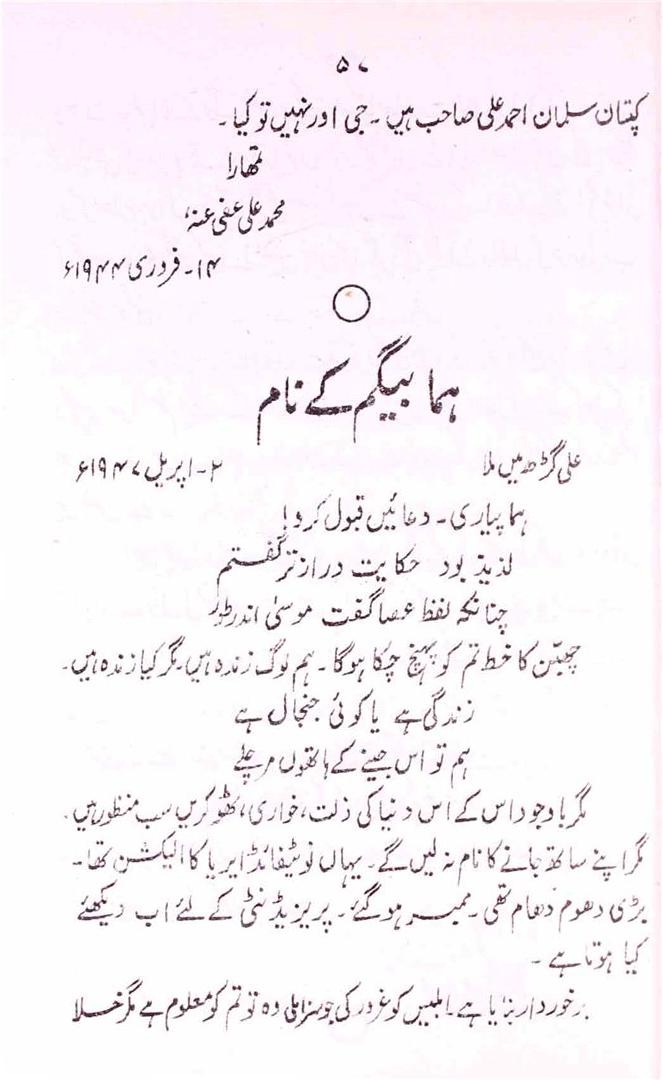 ۵۷
کپتان سلمان احمد علی صاحب ہیں۔ جی اور نہیں تو کیا۔
تمھارا
محمد علی عفی عنہٗ
۱۴۔ فروری ۱۹۴۴ء
ہما بیگم کے نام
علی گڑھ میں ملا
۲۔ اپریل ۱۹۴۷ء
ہما پیاری۔ دعائیں قبول کرو!
لذیذ بود حکایت دراز تر گفتم
چنانکہ لفظ عصا گفت موسیٰ اندر طور
چھبّن کا خط تم کو پہنچ چکا ہوگا۔ ہم لوگ زندہ ہیں۔ مگر کیا زندہ ہیں۔
زندگی ہے یا کوئی جنجال ہے
ہم تو اس جینے کے ہاتھوں مر چلے
مگر باوجود اس کے اس دنیا کی ذلت، خواری، ٹھوکریں سب منظور ہیں۔
مگر اپنے ساتھ جانے کا نام نہ لیں گے۔ یہاں نوٹیفائڈ ایریا کا الیکشن تھا۔
بڑی دھوم دھام تھی۔ ممبر ہو گئے۔ پریزیڈنٹی کے لئے اب دیکھئے
کیا ہوتا ہے۔
برخوردار بنایا ہے۔ ابلیس کو غرور کی جو سزا ملی وہ تو تم کو معلوم ہے مگر خدا